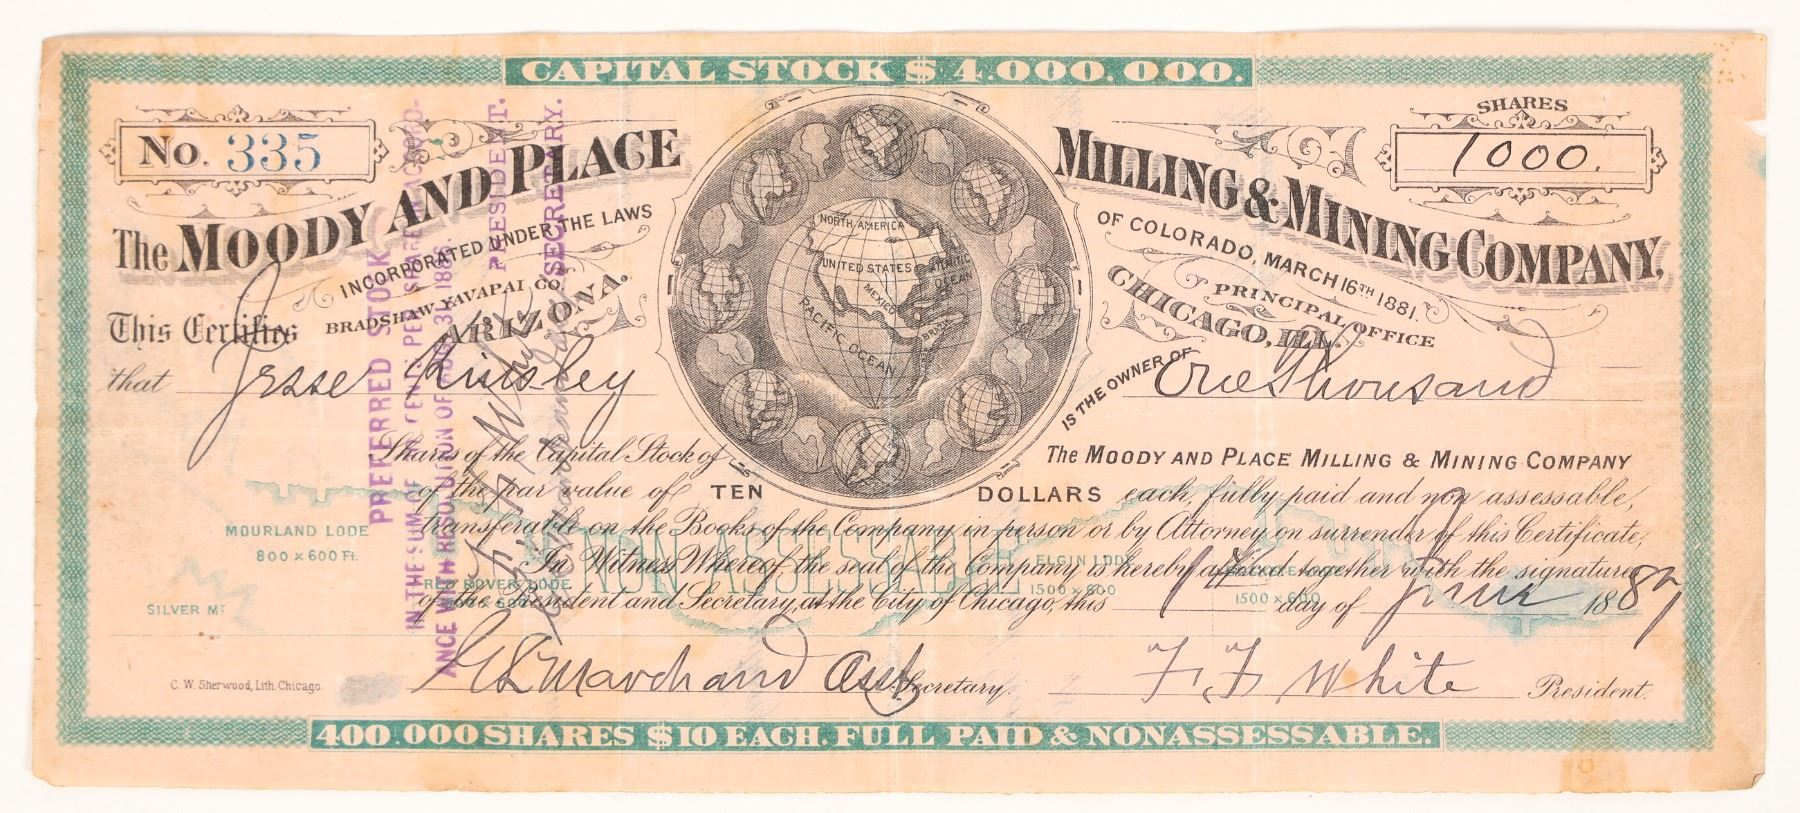 CAPITAL STOCK $ 4.000.000.
No. 335
SHARES
1000.
The MOODY AND PLACE MILLING & MINING COMPANY,
INCORPORATED UNDER THE LAWS OF COLORADO, MARCH 16TH 1881.
BRADSHAW, YAVAPAI CO.
ARIZONA.
PRINCIPAL OFFICE
CHICAGO, ILL.
NORTH AMERICA
UNITED STATES
ATLANTIC
OCEAN
MEXICO
BRAZIL
PACIFIC OCEAN
This Certifies
that Jesse IS THE OWNER OF One Thousand
Shares of the Capital Stock of The MOODY AND PLACE MILLING & MINING COMPANY
of the par value of TEN DOLLARS each, fully paid and non assessable,
transferable on the Books of the Company in person or by Attorney on surrender of this Certificate,
In Witness Whereof, the seal of the Company is hereby affixed together with the signatures
of the President and Secretary, at the City of Chicago, this 1st day of June 1887
G L Marchand Asst. Secretary.
F. F. White President.
NON ASSESSABLE
MOURLAND LODE
800 x 600 Ft.
SILVER MT
RED ROVER LODE
ELGIN LODE
1500 x 600
1500 x 600
PREFERRED STOCK
IN THE SUM OF CENTS PER SHARE IN ACCORD-
ANCE WITH RESOLUTION OF 1886.
F. F. White PRESIDENT.
SECRETARY.
C. W. Sherwood, Lith. Chicago.
400.000 SHARES $10 EACH. FULL PAID & NONASSESSABLE.